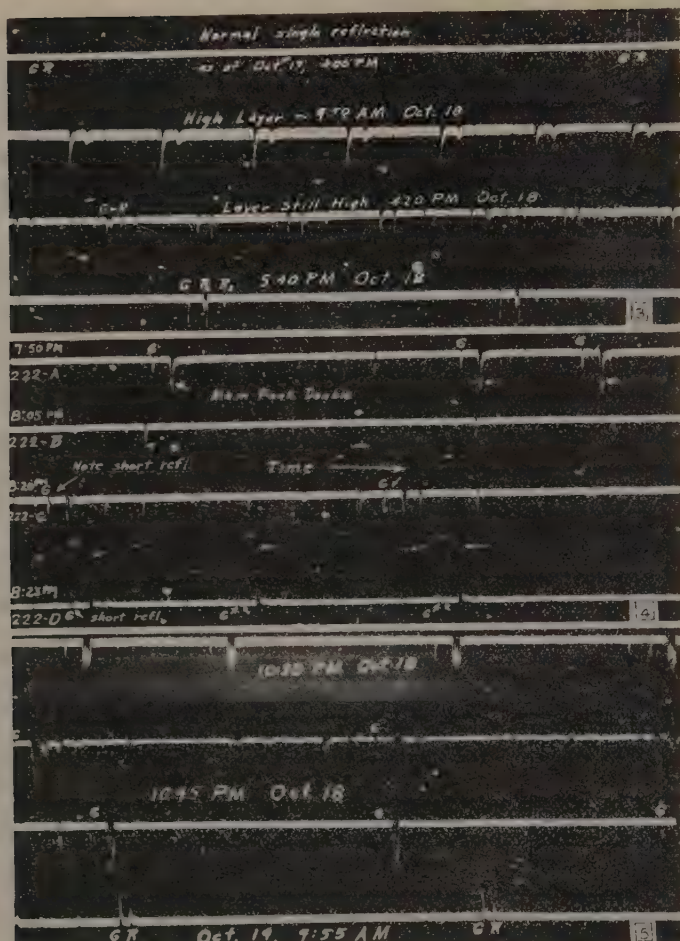 Normal single reflection
G R as at Oct 17, PM G R
High Layer - AM Oct. 18
G-R Layer Still High 4:20 PM Oct. 18
G R R, 5:40 PM Oct. 18
3
7:50 PM G G G
222-A
Main Peak Double
8:05 PM
222-B
Note short refl. Time
G G
222-C
8:23 PM
222-D G short refl. G G
4
10:30 PM Oct 18
G G
10:45 PM Oct 18
G G G
G R Oct. 19, 9:55 AM G R
5